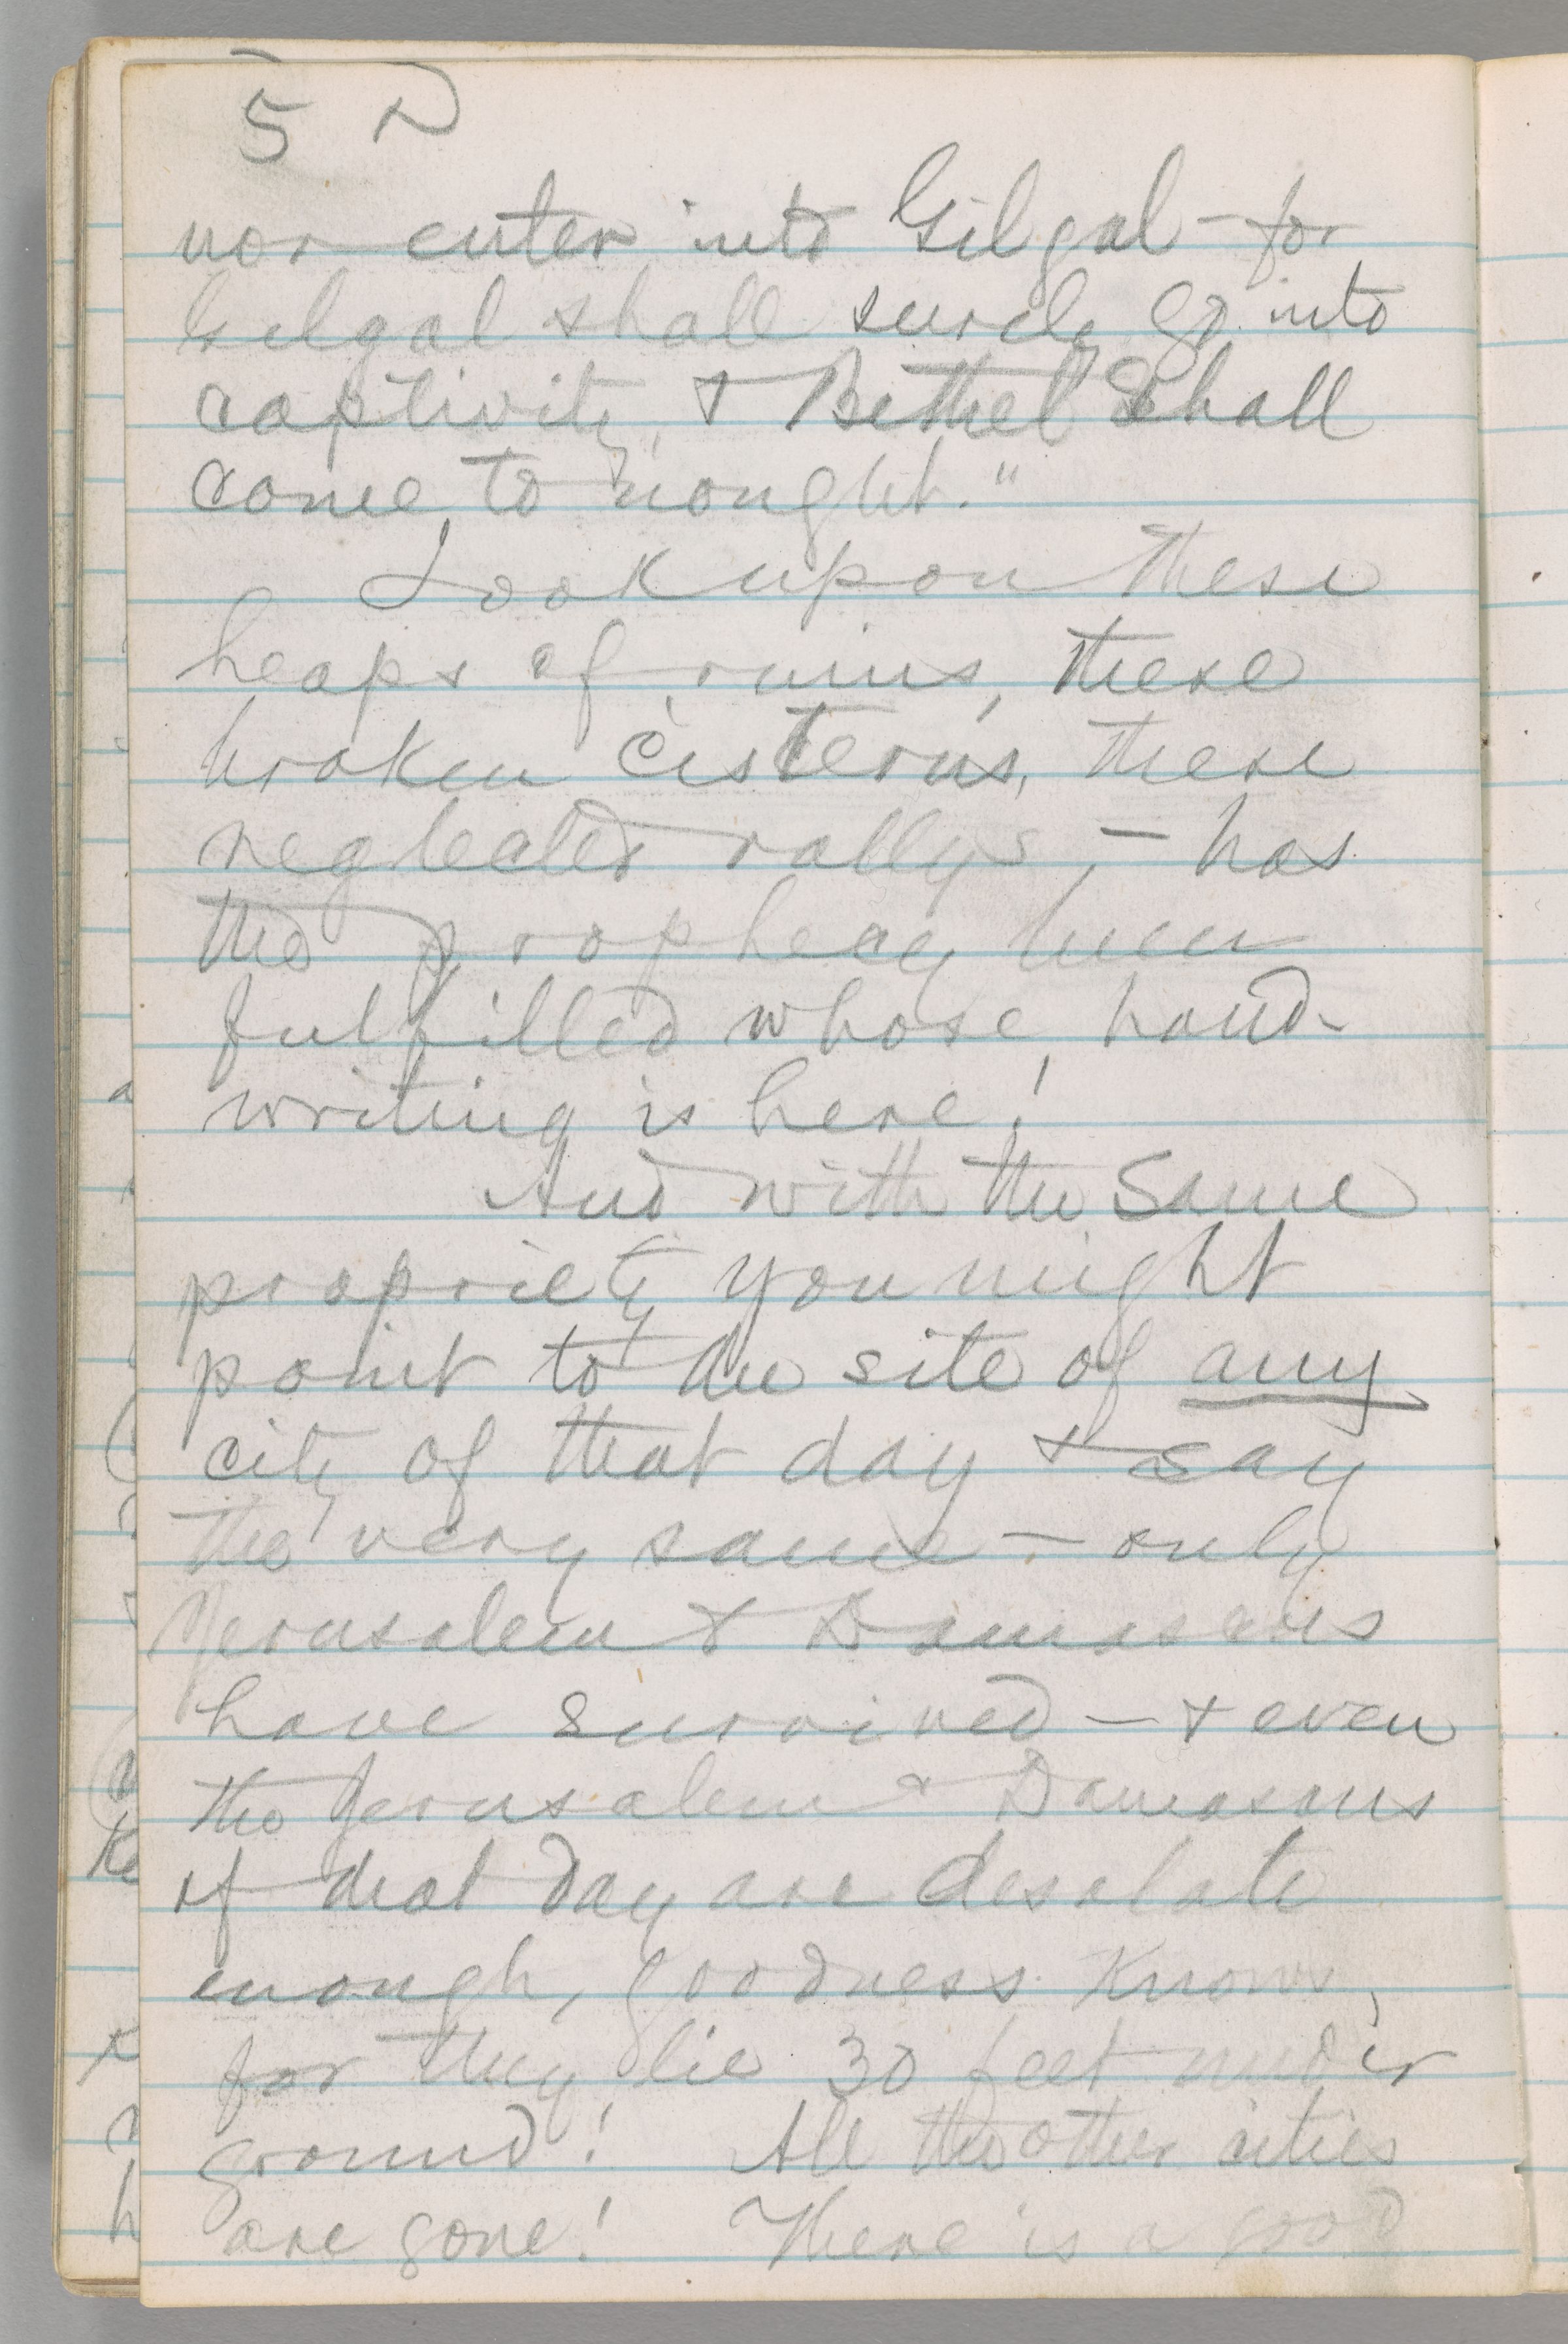 5
nor enter into Gilgal - for
Gilgal shall surely go into
captivity, & Bethel shall
come to nought."
Look upon these
heaps of ruins, these
broken cisterns, these
neglected vallys, - has
the prophecy been
fulfilled whose hand-
writing is here!
And with the same
propriety you might
point to the site of any
city of that day & say
the very same - only
Jerusalem & Damascus
have survived - & even
the Jerusalem & Damascus
of that day are desolate
enough, goodness knows,
for they lie 30 feet under
ground! All the other cities
are gone! There is a good